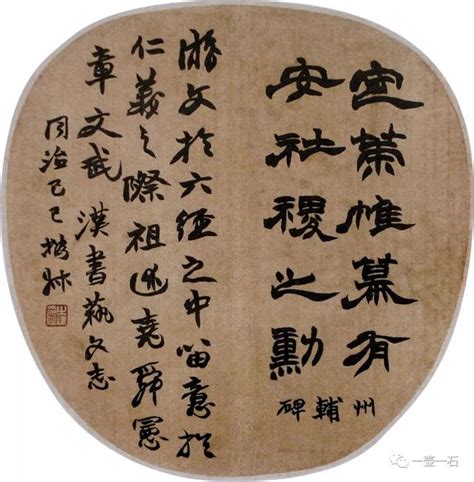 定策帷幕有
安社稷之勳
州輔碑
游文於六經之中留意於
仁義之際祖述堯舜憲
章文武 漢書蓺文志
同治己巳 撝叔
一壶一石